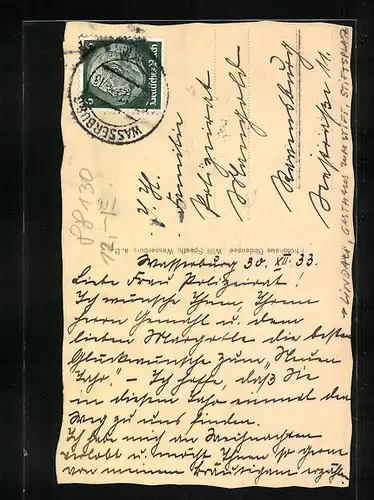 WASSERBURG
Deutsches Reich
6
An
Familie
Polizeirat
Mangold
Ravensburg
11.
→ LINDAU, GASTHAUS ZUM STIFT, STIFTSPLATZ
88130
12,-
Photohaus Bodensee Willi Spaeth, Wasserburg a. B.
Wasserburg 30. XII. 33.
Liebe Frau Polizeirat!
Ich wünsche Ihnen, Ihrem
Herrn Gemahl u. dem
lieben Margotle die besten
Glückwünsche zum "Neuen
Jahr" – Ich hoffe, daß Sie
in diesem Jahr einmal den
Weg zu uns finden.
Ich habe mich an Weihnachten
verlobt u. möcht Ihnen so gern
von meinem Bräutigam erzähle.